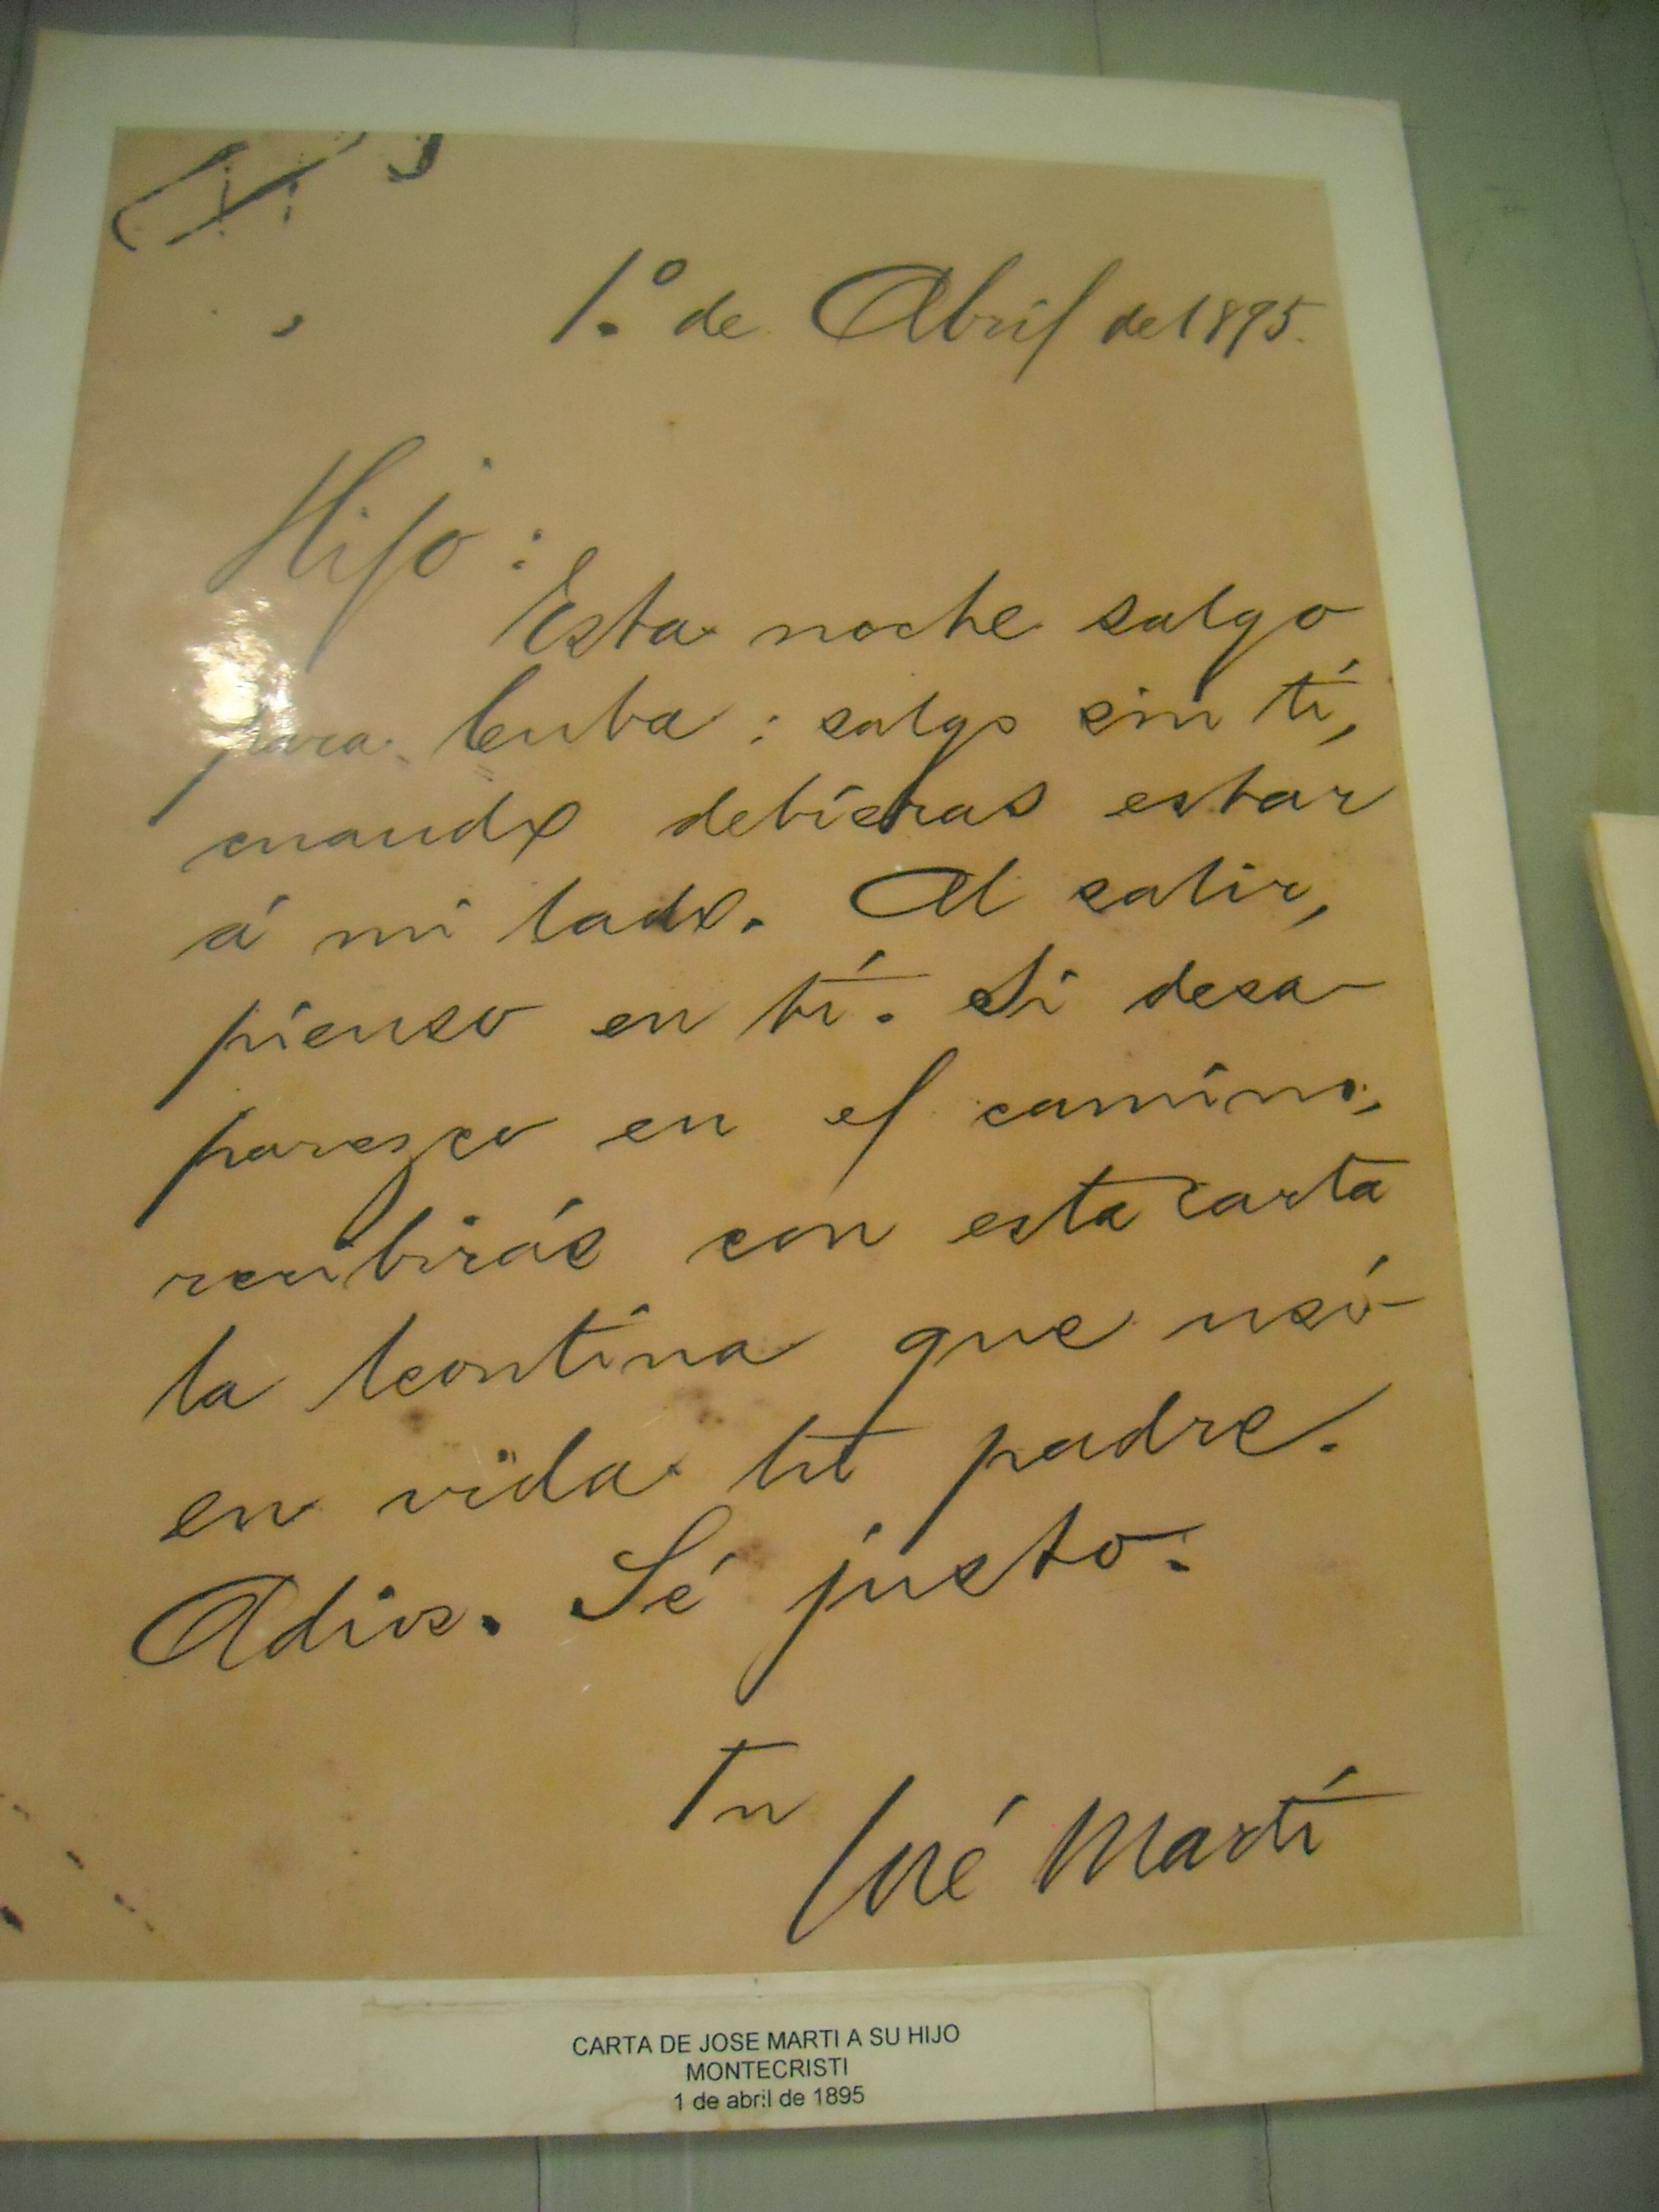 1.º de Abril de 1895.
Hijo:
Esta noche salgo
para Cuba: salgo sin tí,
cuando debieras estar
á mi lado. Al salir,
pienso en tí. Si desa-
parezco en el camino,
recibirás con esta carta
la leontina que usó
en vida tu padre.
Adios. Sé justo.
Tu
José Martí
CARTA DE JOSE MARTI A SU HIJO
MONTECRISTI
1 de abril de 1895